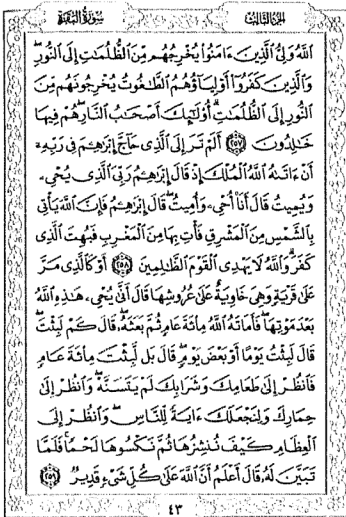 الجزء الثالث
سورة البقرة
ٱللَّهُ وَلِىُّ ٱلَّذِينَ ءَامَنُوا۟ يُخْرِجُهُم مِّنَ ٱلظُّلُمَٰتِ إِلَى ٱلنُّورِۖ
وَٱلَّذِينَ كَفَرُوٓا۟ أَوْلِيَآؤُهُمُ ٱلطَّٰغُوتُ يُخْرِجُونَهُم مِّنَ
ٱلنُّورِ إِلَى ٱلظُّلُمَٰتِۗ أُو۟لَٰٓئِكَ أَصْحَٰبُ ٱلنَّارِۖ هُمْ فِيهَا
خَٰلِدُونَ ٢٥٧ أَلَمْ تَرَ إِلَى ٱلَّذِى حَآجَّ إِبْرَٰهِۦمَ فِى رَبِّهِۦٓ
أَنْ ءَاتَىٰهُ ٱللَّهُ ٱلْمُلْكَ إِذْ قَالَ إِبْرَٰهِۦمُ رَبِّىَ ٱلَّذِى يُحْىِۦ
وَيُمِيتُ قَالَ أَنَا۠ أُحْىِۦ وَأُمِيتُۖ قَالَ إِبْرَٰهِۦمُ فَإِنَّ ٱللَّهَ يَأْتِى
بِٱلشَّمْسِ مِنَ ٱلْمَشْرِقِ فَأْتِ بِهَا مِنَ ٱلْمَغْرِبِ فَبُهِتَ ٱلَّذِى
كَفَرَۗ وَٱللَّهُ لَا يَهْدِى ٱلْقَوْمَ ٱلظَّٰلِمِينَ ٢٥٨ أَوْ كَٱلَّذِى مَرَّ
عَلَىٰ قَرْيَةٍ وَهِىَ خَاوِيَةٌ عَلَىٰ عُرُوشِهَا قَالَ أَنَّىٰ يُحْىِۦ هَٰذِهِ ٱللَّهُ
بَعْدَ مَوْتِهَاۖ فَأَمَاتَهُ ٱللَّهُ مِا۟ئَةَ عَامٍ ثُمَّ بَعَثَهُۥۖ قَالَ كَمْ لَبِثْتَۖ
قَالَ لَبِثْتُ يَوْمًا أَوْ بَعْضَ يَوْمٍۖ قَالَ بَل لَّبِثْتَ مِا۟ئَةَ عَامٍ
فَٱنظُرْ إِلَىٰ طَعَامِكَ وَشَرَابِكَ لَمْ يَتَسَنَّهْۖ وَٱنظُرْ إِلَىٰ
حِمَارِكَ وَلِنَجْعَلَكَ ءَايَةً لِّلنَّاسِۖ وَٱنظُرْ إِلَى
ٱلْعِظَامِ كَيْفَ نُنشِزُهَا ثُمَّ نَكْسُوهَا لَحْمًاۚ فَلَمَّا
تَبَيَّنَ لَهُۥ قَالَ أَعْلَمُ أَنَّ ٱللَّهَ عَلَىٰ كُلِّ شَىْءٍ قَدِيرٌ ٢٥٩
٤٣